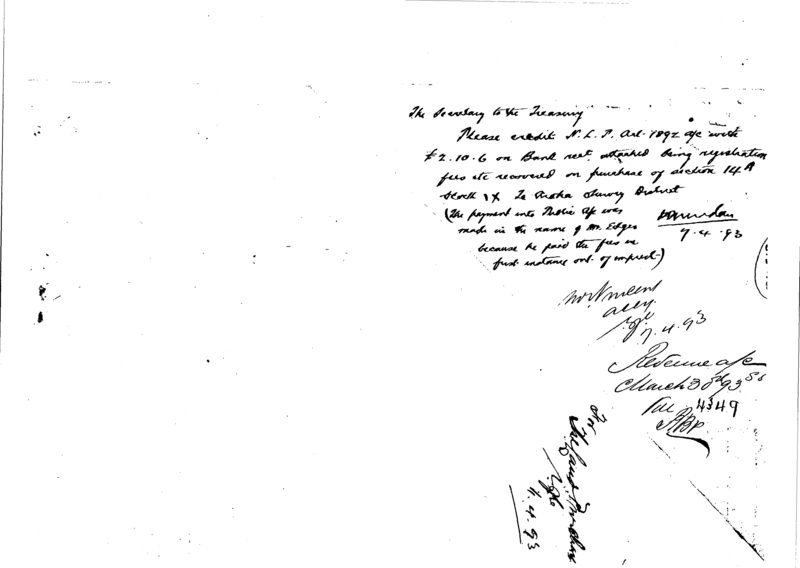 The Secretary to the Treasury
Please credit N. L. P. Act 1892 a/c with
£2.10.6 on Bank rect attached being registration
fees etc recovered on purchase of section 14A
Block IX Te Survey District
(The payment into Public a/c was
made in the name of Mr. Edger
because he paid the fees in
first instance out of imprest)
7.4.93
Mr Vincent
7.4.93
Revenue a/c
March 93
4349
For
11.4.93